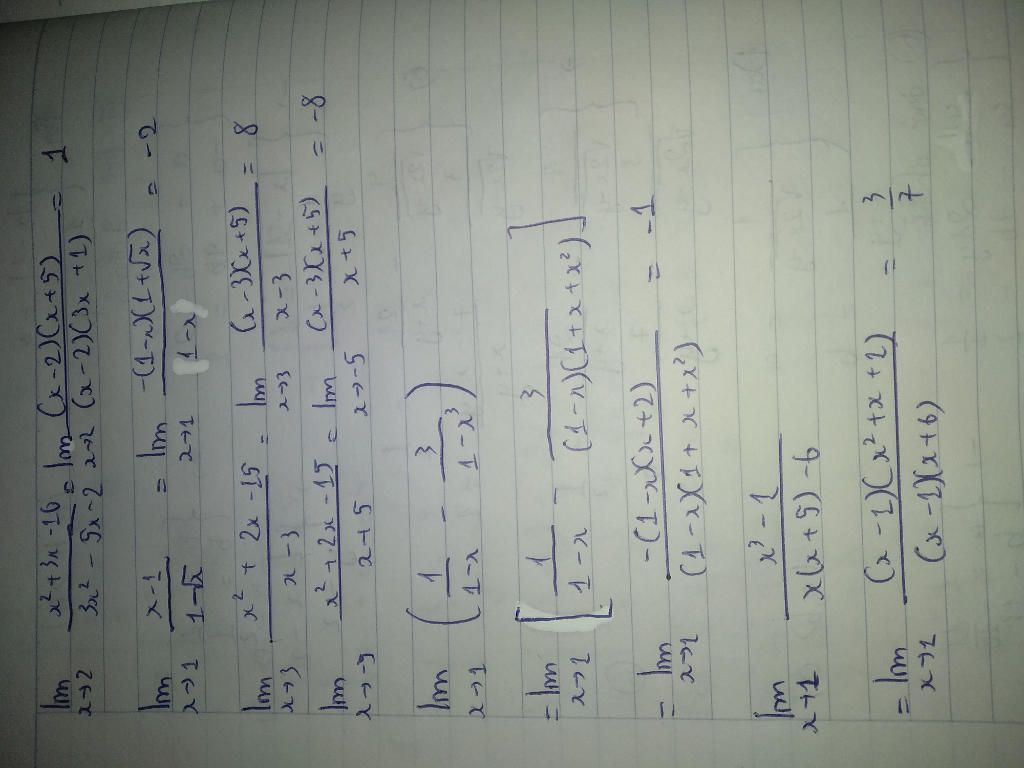 lim x→2 (x² + 3x - 10)/(3x² - 5x - 2) = lim x→2 (x-2)(x+5)/(x-2)(3x+1) = 1
lim x→1 (x-1)/(1-√x) = lim x→1 -(1-x)(1+√x)/(1-x) = -2
lim x→3 (x² + 2x - 15)/(x-3) = lim x→3 (x-3)(x+5)/(x-3) = 8
lim x→-5 (x² + 2x - 15)/(x+5) = lim x→-5 (x-3)(x+5)/(x+5) = -8
lim x→1 (1/(1-x) - 3/(1-x³))
= lim x→1 [1/(1-x) - 3/(1-x)(1+x+x²)]
= lim x→1 -(1-x)(x+2)/(1-x)(1+x+x²) = -1
lim x→1 (x³-1)/(x(x+5)-6)
= lim x→1 (x-1)(x²+x+1)/(x-1)(x+6) = 3/7